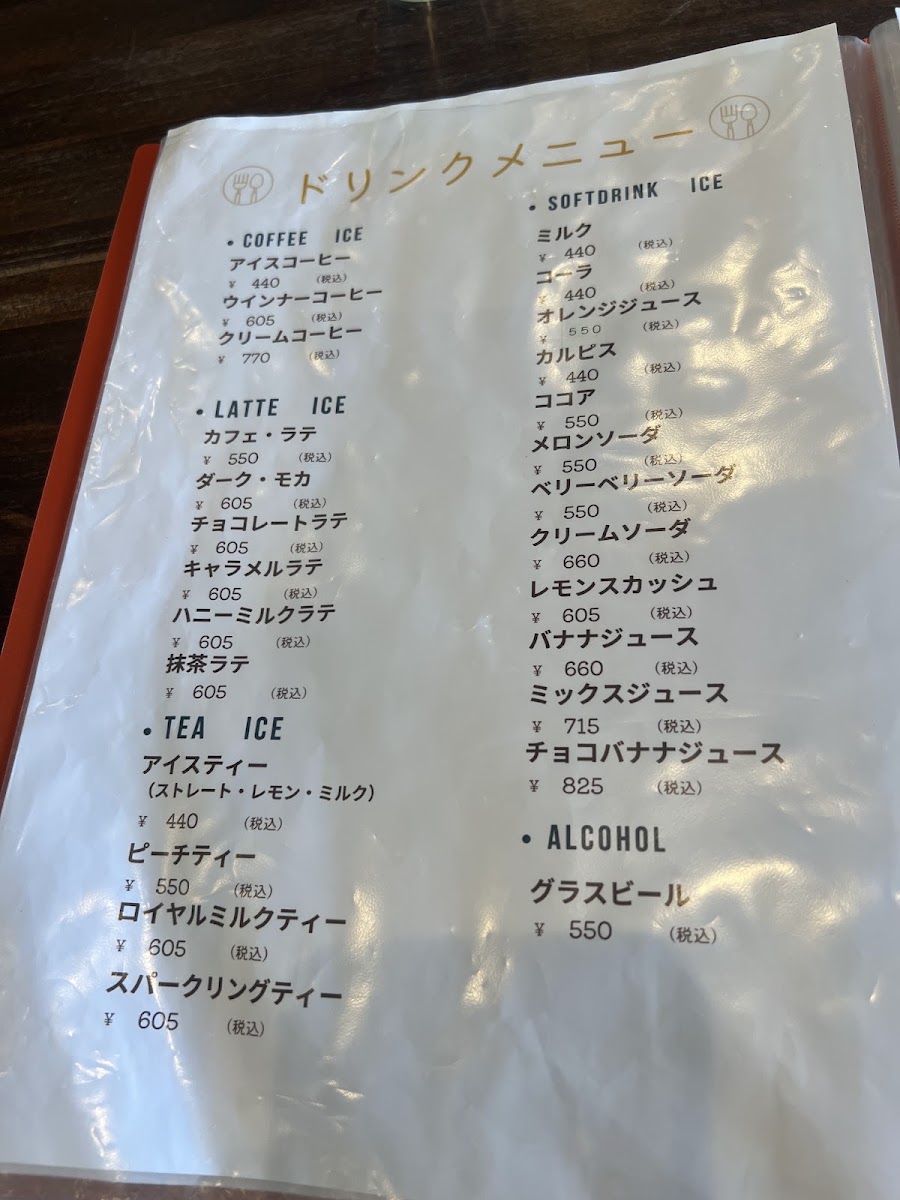 ドリンクメニュー
• COFFEE ICE
アイスコーヒー
¥ 440 (税込)
ウインナーコーヒー
¥ 605 (税込)
クリームコーヒー
¥ 770 (税込)
• LATTE ICE
カフェ・ラテ
¥ 550 (税込)
ダーク・モカ
¥ 605 (税込)
チョコレートラテ
¥ 605 (税込)
キャラメルラテ
¥ 605 (税込)
ハニーミルクラテ
¥ 605 (税込)
抹茶ラテ
¥ 605 (税込)
• TEA ICE
アイスティー
(ストレート・レモン・ミルク)
¥ 440 (税込)
ピーチティー
¥ 550 (税込)
ロイヤルミルクティー
¥ 605 (税込)
スパークリングティー
¥ 605 (税込)
• SOFTDRINK ICE
ミルク
¥ 440 (税込)
コーラ
¥ 440 (税込)
オレンジジュース
¥ 550 (税込)
カルピス
¥ 440 (税込)
ココア
¥ 550 (税込)
メロンソーダ
¥ 550 (税込)
ベリーベリーソーダ
¥ 550 (税込)
クリームソーダ
¥ 660 (税込)
レモンスカッシュ
¥ 605 (税込)
バナナジュース
¥ 660 (税込)
ミックスジュース
¥ 715 (税込)
チョコバナナジュース
¥ 825 (税込)
• ALCOHOL
グラスビール
¥ 550 (税込)